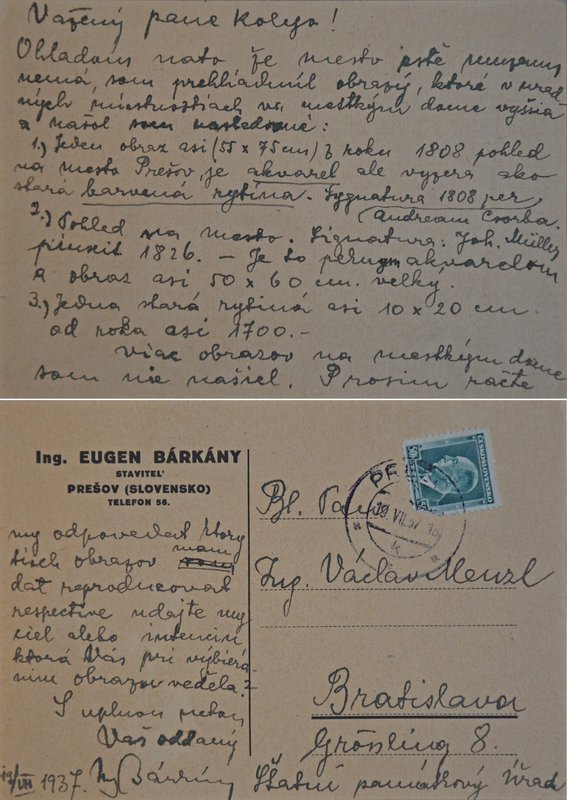 Važený pane Kolego!
Ohladom nato že mesto ešte museum
nemá, som prehliadnul obrazy, ktoré v úrad-
ných miestnostiach vo mestkým dome
a našol som nasledovné:
1.) Jeden obraz asi (55 x 75 cm) z roku 1808 pohled
na mesto Prešov, je akvarel ale vyzera ako
stará barvená rytina. Sygnatura 1808 per
Andream Czorba.
2.) Pohled na mesto. Signatura: Joh. Müller
pinxit 1826. — Je to akvarelom
a obraz asi 50 x 60 cm. velký.
3.) Jedna stará rytina asi 10 x 20 cm.
od roka asi 1700.-
viac obrazov na mestkým dome
som nie našiel. Prosim račte
Ing. EUGEN BÁRKÁNY
STAVITEĽ
PREŠOV (SLOVENSKO)
TELEFON 56.
my odpovedat ktory
tisch obrazov mam
dat reproducovat
respective udajte my
ciel alebo intenciu
ktorá Vás pri výbierá-
nim obrazov vedela?
S uplnou
Vaš oddaný
19/VII 1937. Ing Bárkány
ČESKOSLOVENSKO
50
VII.37
Bl. Pán
Ing. Václav Menzl
Bratislava
Grössling 8.
Štatní pamatkový Úřad